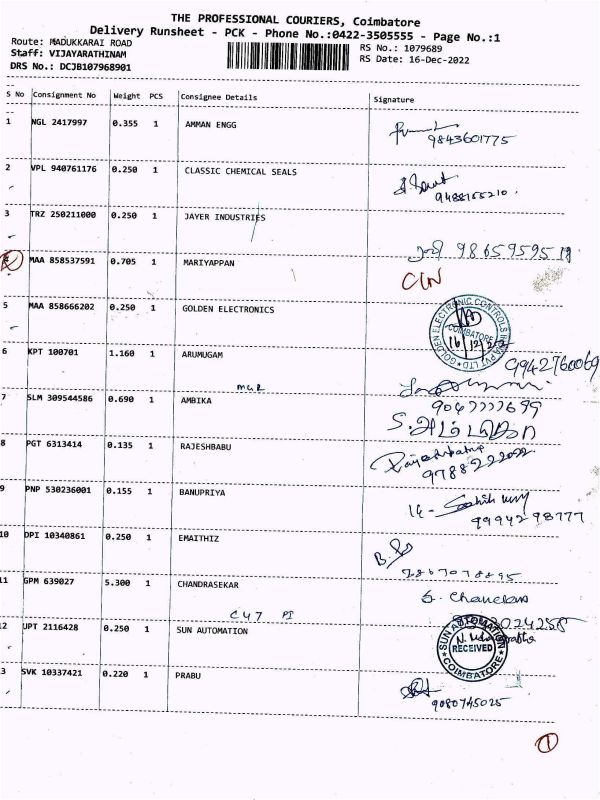 THE PROFESSIONAL COURIERS, Coimbatore
Delivery Runsheet - PCK - Phone No.:0422-3505555 - Page No.:1
Route: MADUKKARAI ROAD
Staff: VIJAYARATHINAM
DRS No.: DCJB107968901
RS No.: 1079689
RS Date: 16-Dec-2022
S No Consignment No Weight PCS Consignee Details Signature
1 NGL 2417997 0.355 1 AMMAN ENGG
9843601775
2 VPL 940761176 0.250 1 CLASSIC CHEMICAL SEALS
9488155210
3 TRZ 250211000 0.250 1 JAYER INDUSTRIES
4 MAA 858537591 0.705 1 MARIYAPPAN
CIN
5 MAA 858666202 0.250 1 GOLDEN ELECTRONICS
GOLDEN ELECTRONIC CONTROLS INDIA PVT LTD
COIMBATORE
6 KPT 100701 1.160 1 ARUMUGAM
9942760069
7 SLM 309544586 0.690 1 AMBIKA
8 PGT 6313414 0.135 1 RAJESHBABU
9788222022
9 PNP 530236001 0.155 1 BANUPRIYA
9994298777
10 DPI 10340861 0.250 1 EMAITHIZ
11 GPM 639027 5.300 1 CHANDRASEKAR
12 UPT 2116428 0.250 1 SUN AUTOMATION
SUN AUTOMATION
RECEIVED
COIMBATORE
13 SVK 10337421 0.220 1 PRABU
9080745025
1